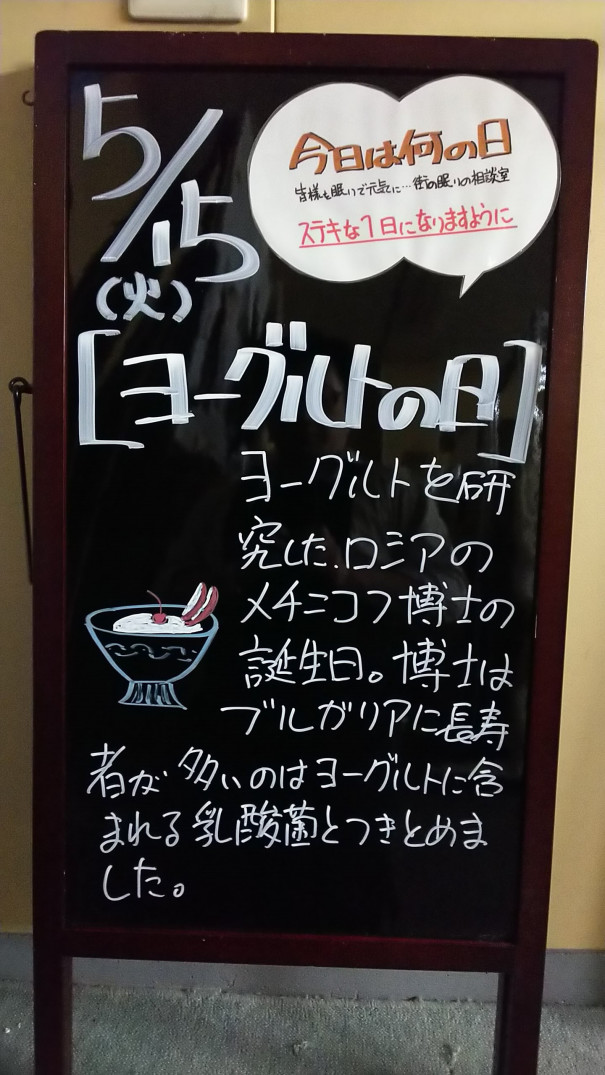 5/15
(火)
今日は何の日
皆様を眠りで元気に…街の眠りの相談室
ステキな1日になりますように
[ヨーグルトの日]
ヨーグルトを研
究した、ロシアの
メチニコフ博士の
誕生日。博士は
ブルガリアに長寿
者が多いのはヨーグルトに含
まれる乳酸菌とつきとめま
した。